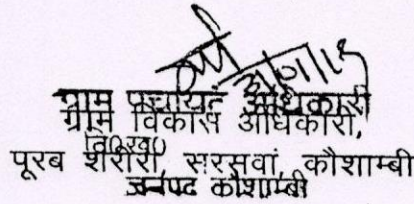 ग्राम पंचायत अधिकारी
ग्राम विकास अधिकारी,
वि०ख०
पूरब शरीरा, सरसवां, कौशाम्बी
जनपद कौशाम्बी